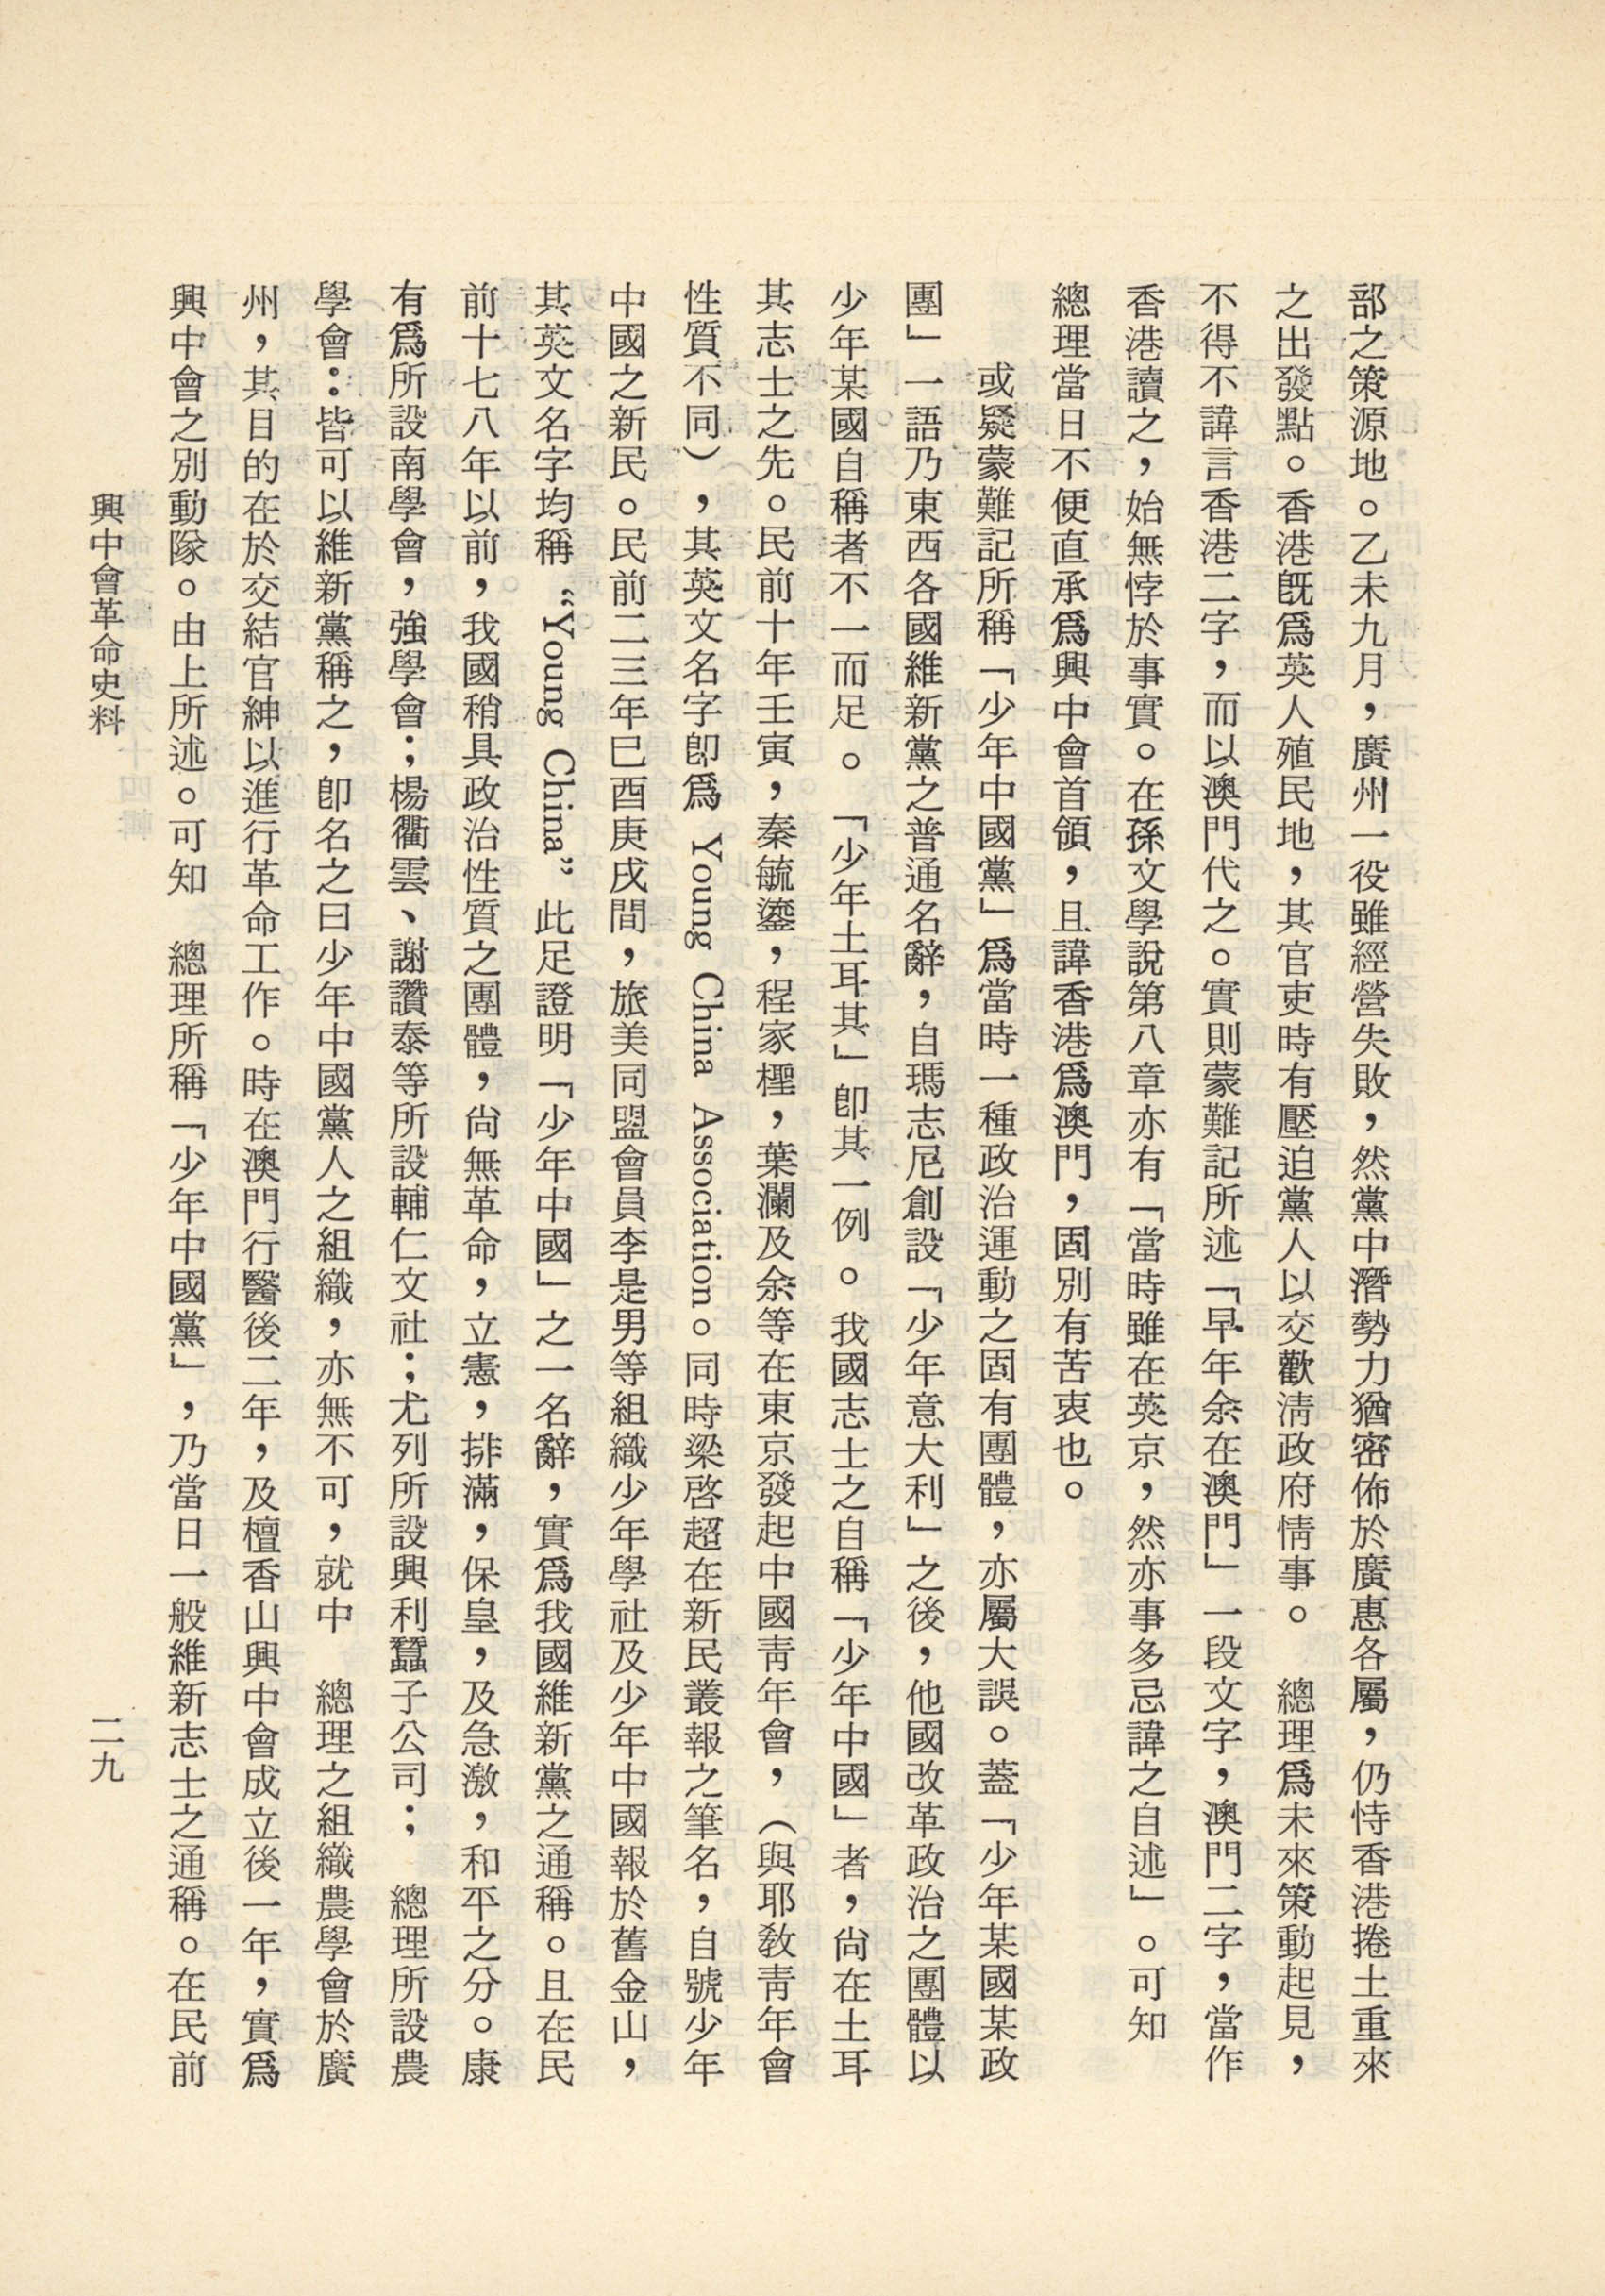 部之策源地。乙未九月，廣州一役雖經營失敗，然黨中潛勢力猶密佈於廣惠各屬，仍恃香港捲土重來
之出發點。香港旣爲英人殖民地，其官吏時有壓迫黨人以交歡淸政府情事。　總理爲未來策動起見，
不得不諱言香港二字，而以澳門代之。實則蒙難記所述「早年余在澳門」一段文字，澳門二字，當作
香港讀之，始無悖於事實。在孫文學說第八章亦有「當時雖在英京，然亦事多忌諱之自述」。可知
總理當日不便直承爲興中會首領，且諱香港爲澳門，固別有苦衷也。
或疑蒙難記所稱「少年中國黨」爲當時一種政治運動之固有團體，亦屬大誤。蓋「少年某國某政
團」一語乃東西各國維新黨之普通名辭，自瑪志尼創設「少年意大利」之後，他國改革政治之團體以
少年某國自稱者不一而足。「少年土耳其」卽其一例。我國志士之自稱「少年中國」者，尙在土耳
其志士之先。民前十年壬寅，秦毓鎏，程家檉，葉瀾及余等在東京發起中國靑年會，（與耶敎靑年會
性質不同），其英文名字卽爲 Young China Association。同時梁啓超在新民叢報之筆名，自號少年
中國之新民。民前二三年已酉庚戌間，旅美同盟會員李是男等組織少年學社及少年中國報於舊金山，
其英文名字均稱 “Young China” 此足證明「少年中國」之一名辭，實爲我國維新黨之通稱。且在民
前十七八年以前，我國稍具政治性質之團體，尙無革命，立憲，排滿，保皇，及急激，和平之分。康
有爲所設南學會，強學會；楊衢雲、謝讚泰等所設輔仁文社；尤列所設興利蠶子公司；　總理所設農
學會：皆可以維新黨稱之，卽名之曰少年中國黨人之組織，亦無不可，就中　總理之組織農學會於廣
州，其目的在於交結官紳以進行革命工作。時在澳門行醫後二年，及檀香山興中會成立後一年，實爲
興中會之別動隊。由上所述。可知　總理所稱「少年中國黨」，乃當日一般維新志士之通稱。在民前
興中會革命史料
二九